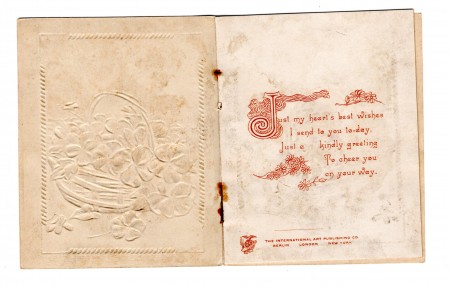 Just my heart's best wishes
I send to you to-day,
Just a kindly greeting
To cheer you
on your way.
THE INTERNATIONAL ART PUBLISHING CO
BERLIN LONDON NEW YORK